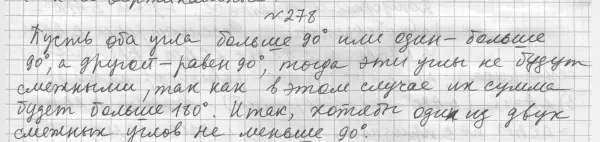 №278
Пусть оба угла больше 90° или один – больше
90°, а другой – равен 90°, тогда эти углы не будут
смежными, так как в этом случае их сумма
будет больше 180°. Итак, хотябы один из двух
смежных углов не меньше 90°.